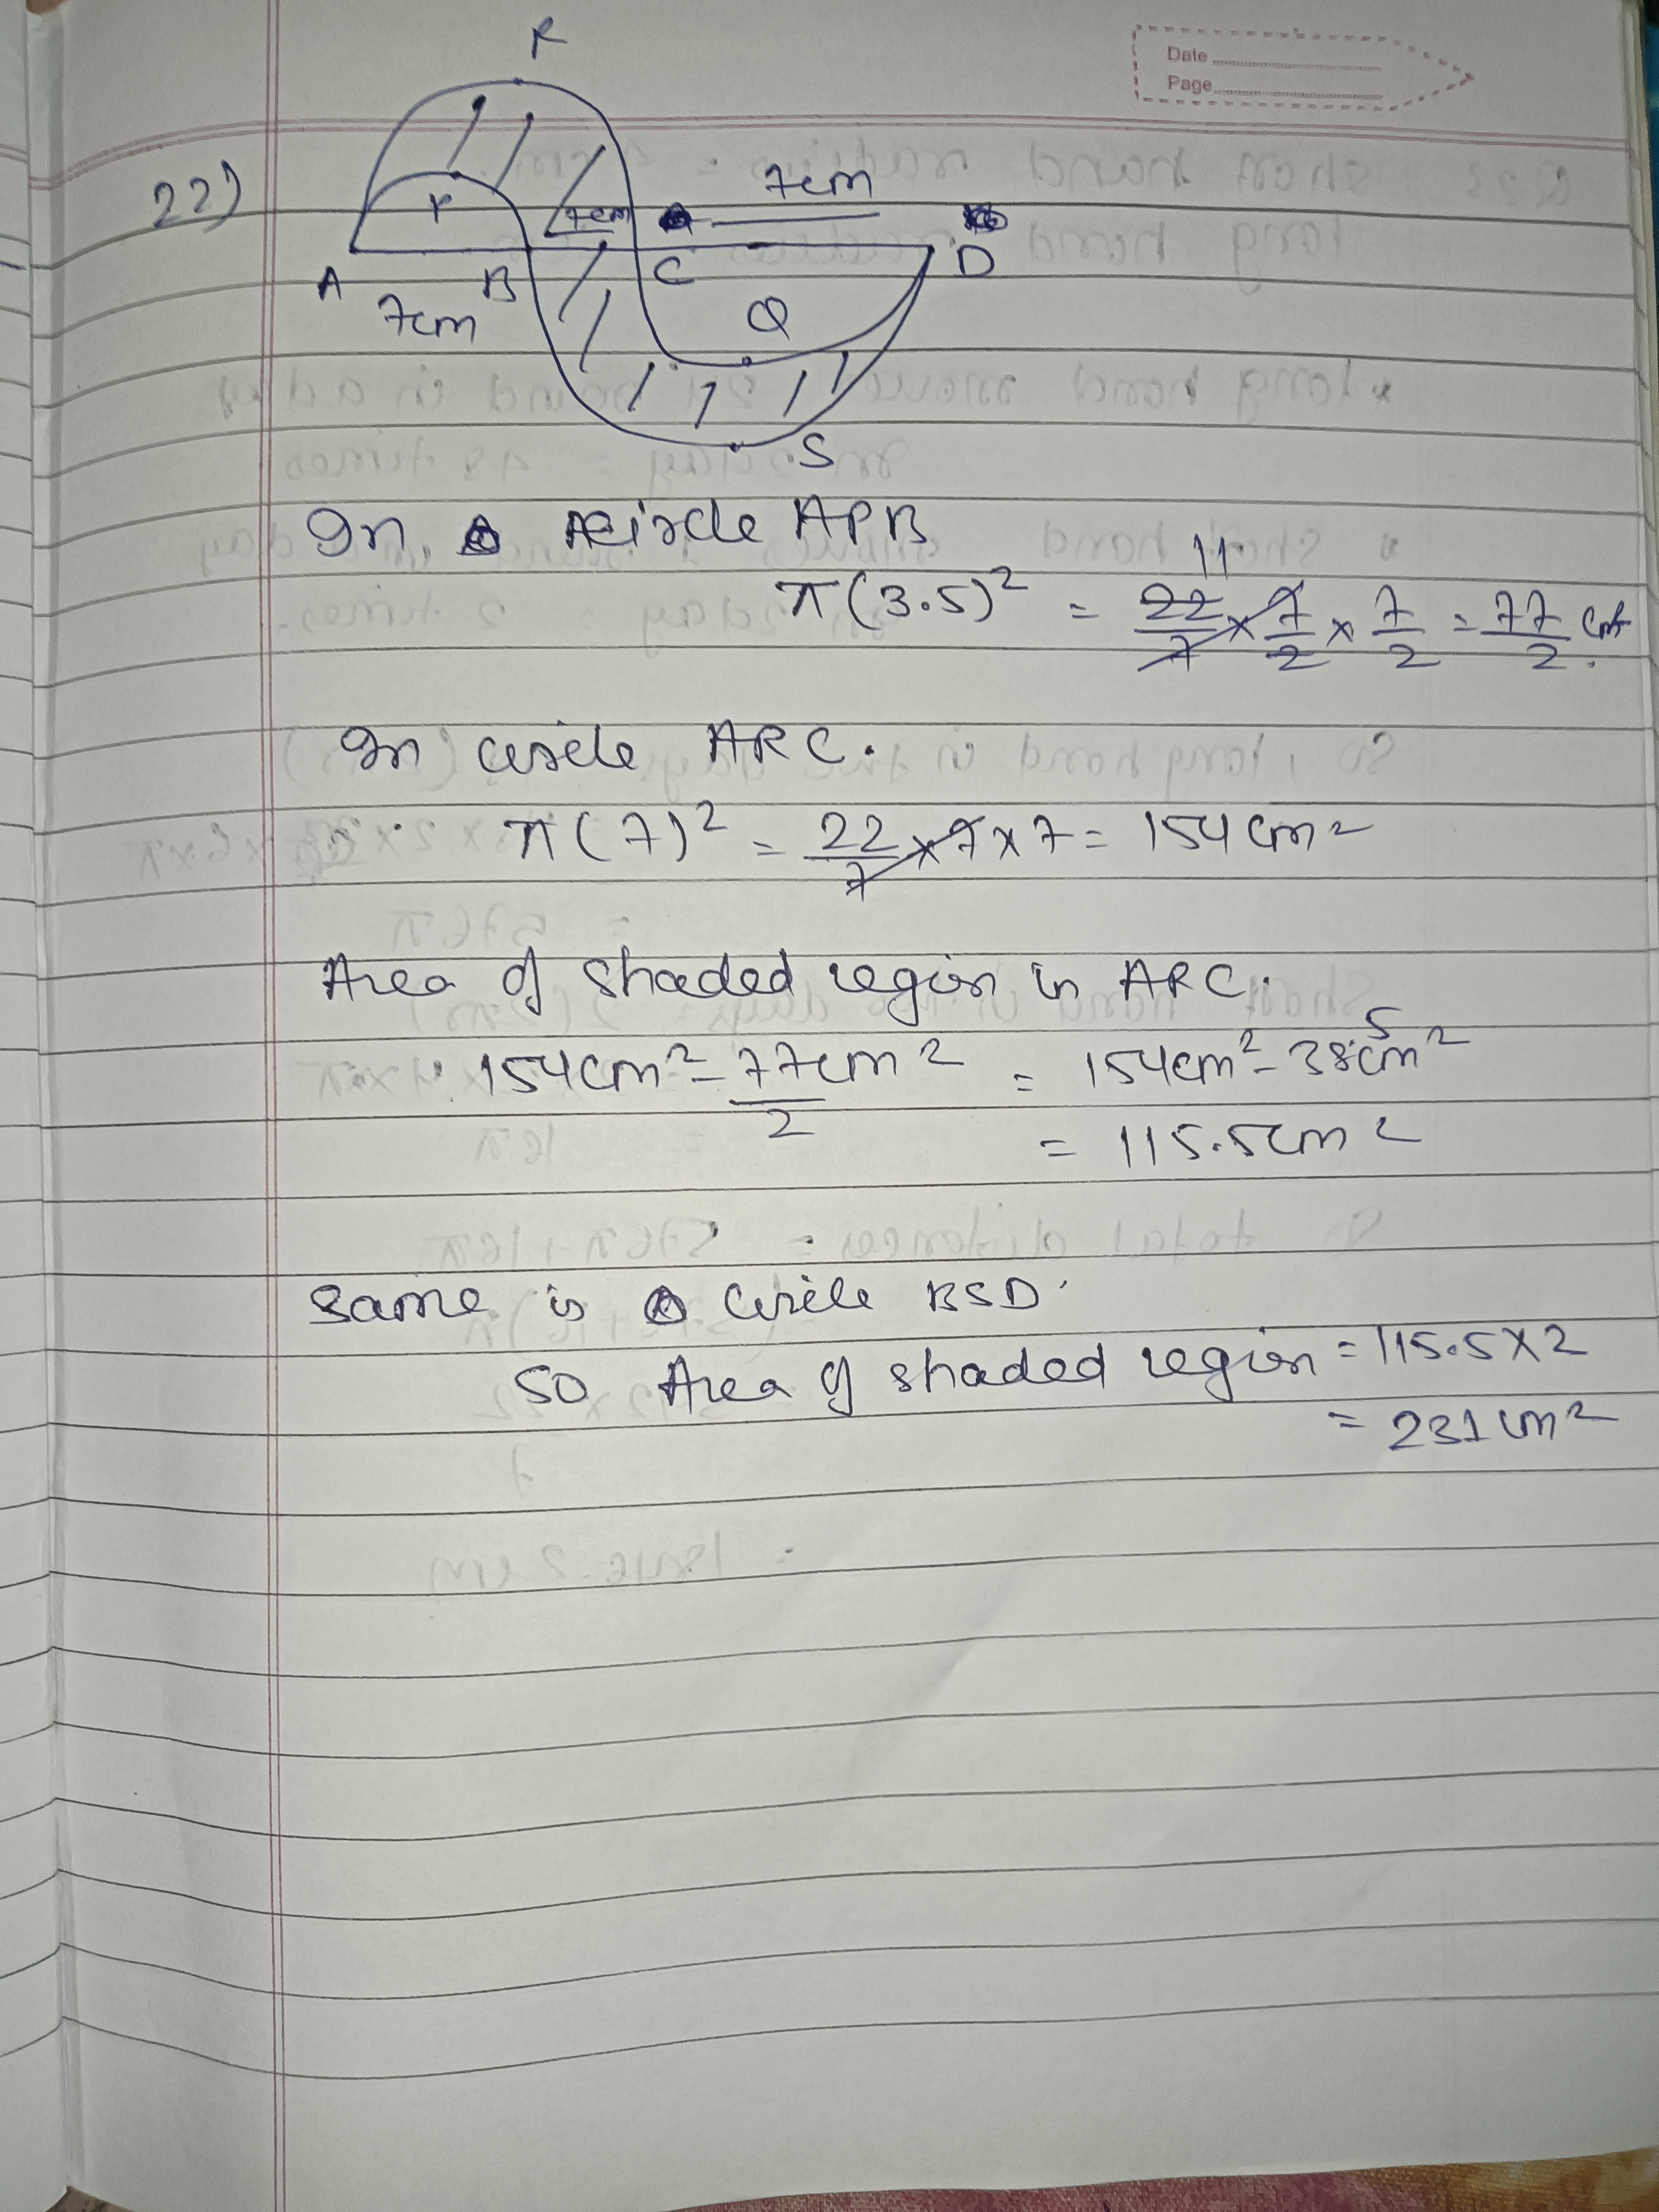 Date
Page
R
22)
7cm
P
7cm
A
B
C
D
7cm
Q
S
In Circle APB
11
π(3.5)² = 22/7 × 7/2 × 7/2 = 77/2
In circle ARC.
π(7)² = 22/7 × 7 × 7 = 154 cm²
Area of shaded region in ARC.
154cm² - 77cm²/2 = 154cm² - 38.5cm²
= 115.5cm²
Same is circle BSD.
SO Area of shaded region = 115.5 × 2
= 231 cm²